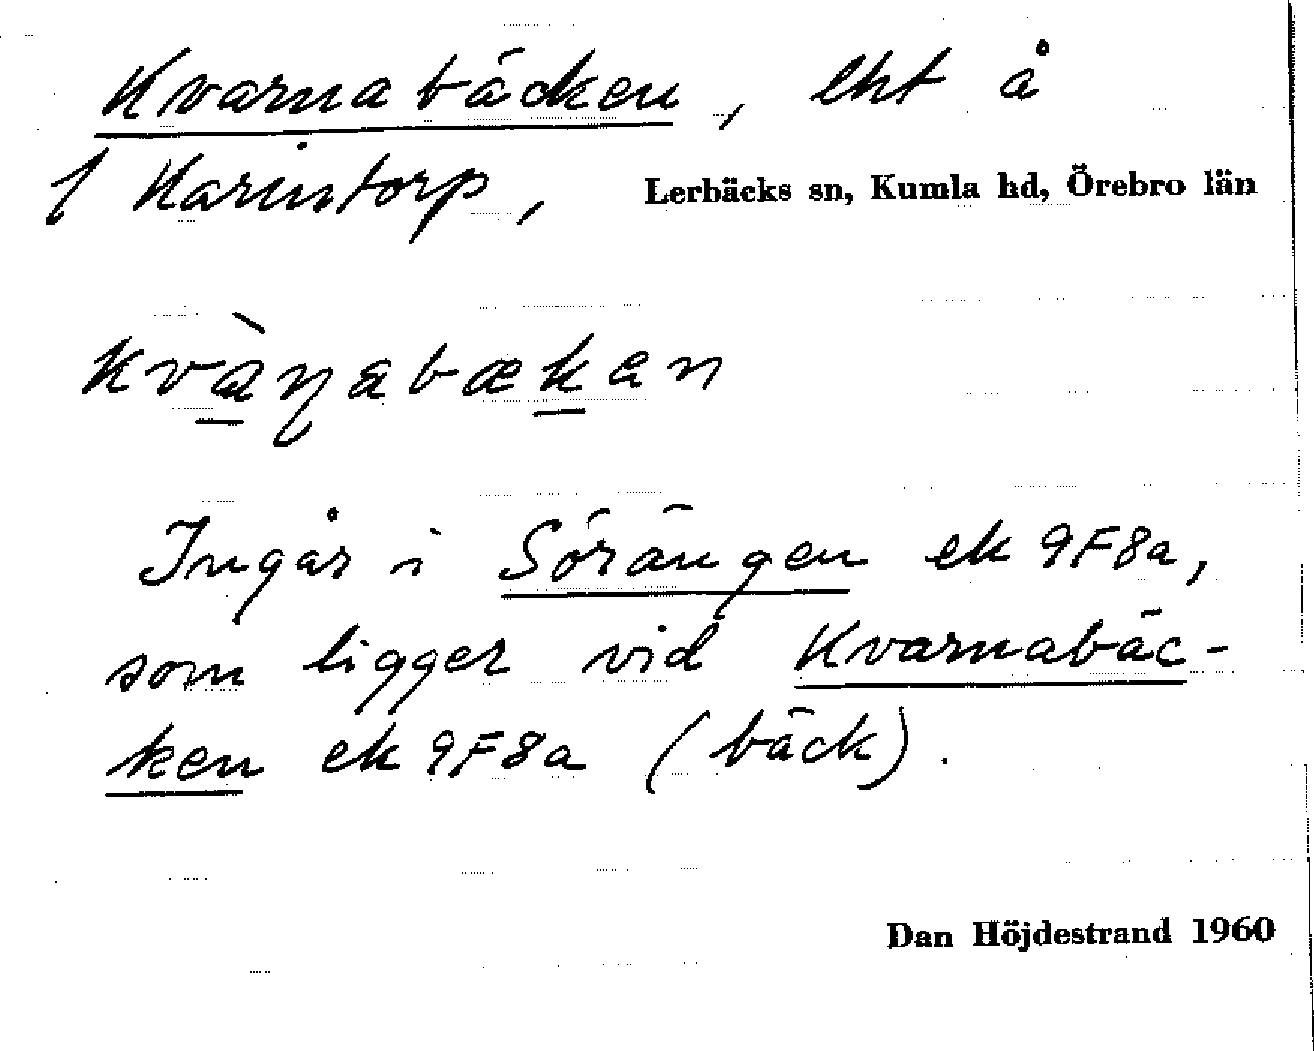 Kvarnabäcken, lht å
f Karinstorp, Lerbäcks sn, Kumla hd, Örebro län
kvàɳabækan
Ingår i Sörängen ek 9F8a,
som ligger vid Kvarnabäc-
ken ek 9F8a (bäck).
Dan Höjdestrand 1960